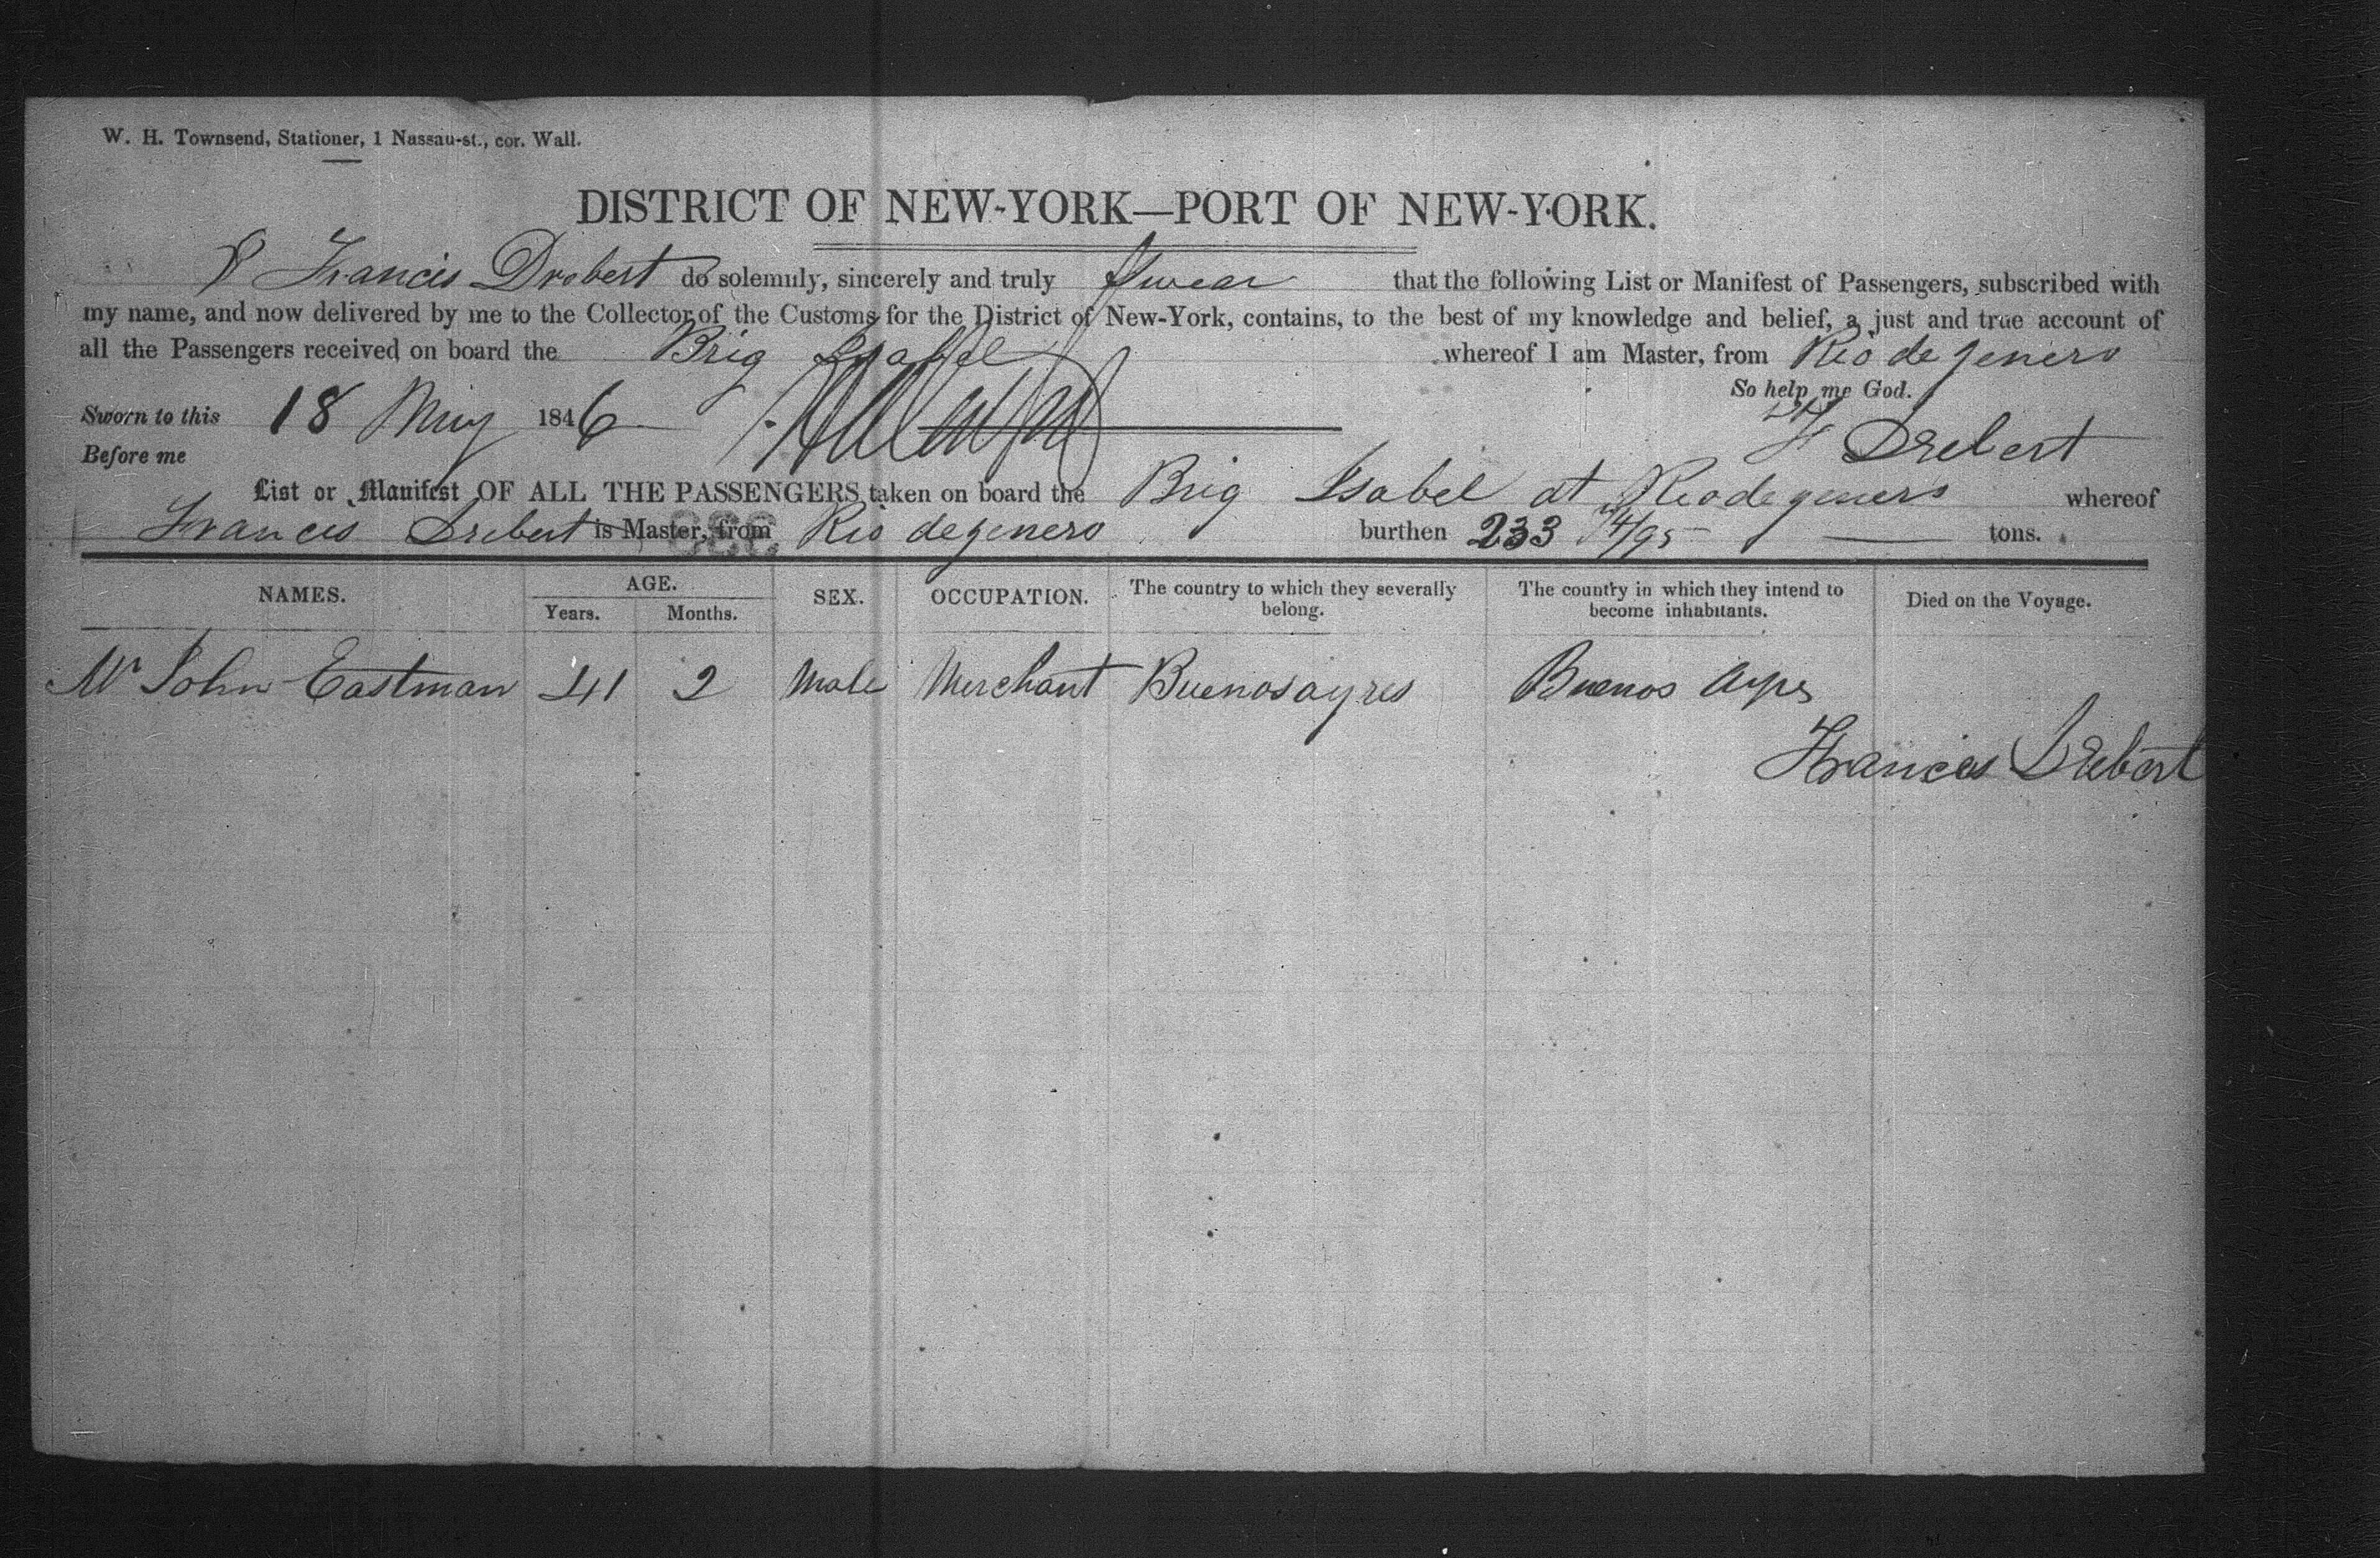 W. H. Townsend, Stationer, 1 Nassau-st., cor. Wall.
DISTRICT OF NEW-YORK—PORT OF NEW-YORK.
I Francis Drebert do solemnly, sincerely and truly Swear that the following List or Manifest of Passengers, subscribed with
my name, and now delivered by me to the Collector of the Customs for the District of New-York, contains, to the best of my knowledge and belief, a just and true account of
all the Passengers received on board the Brig Isabel whereof I am Master, from Rio de genero
So help me God.
Sworn to this 18 May 1846
F Drebert
Before me
List or Manifest OF ALL THE PASSENGERS taken on board the Brig Isabel at Rio de genero whereof
Francis Drebert is Master, from Rio de genero burthen 233 14/95 tons.
NAMES. AGE. SEX. OCCUPATION. The country to which they severally belong. The country in which they intend to become inhabitants. Died on the Voyage.
Years. Months.
Mr John Eastman 41 2 Male Merchant Buenos ayres Buenos Ayres
Francis Drebert